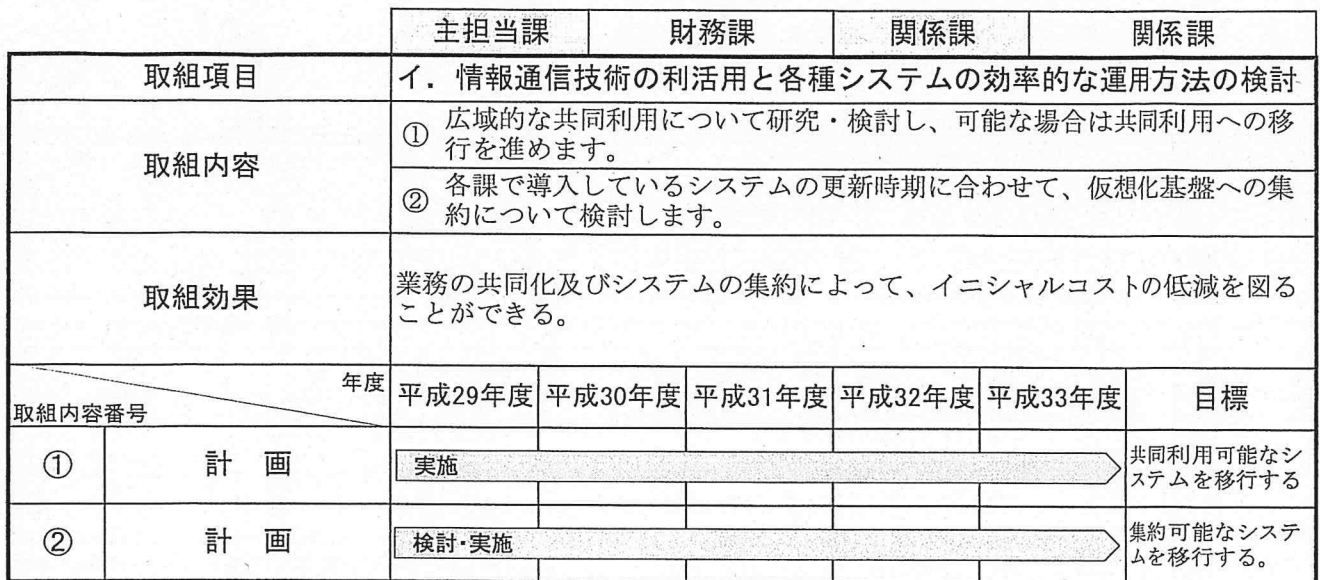 主担当課 財務課 関係課 関係課
取組項目 イ．情報通信技術の利活用と各種システムの効率的な運用方法の検討
取組内容
① 広域的な共同利用について研究・検討し、可能な場合は共同利用への移
行を進めます。
② 各課で導入しているシステムの更新時期に合わせて、仮想化基盤への集
約について検討します。
取組効果
業務の共同化及びシステムの集約によって、イニシャルコストの低減を図る
ことができる。
年度
取組内容番号
平成29年度 平成30年度 平成31年度 平成32年度 平成33年度 目標
① 計 画 実施
共同利用可能なシ
ステムを移行する
② 計 画 検討・実施
集約可能なシステ
ムを移行する。